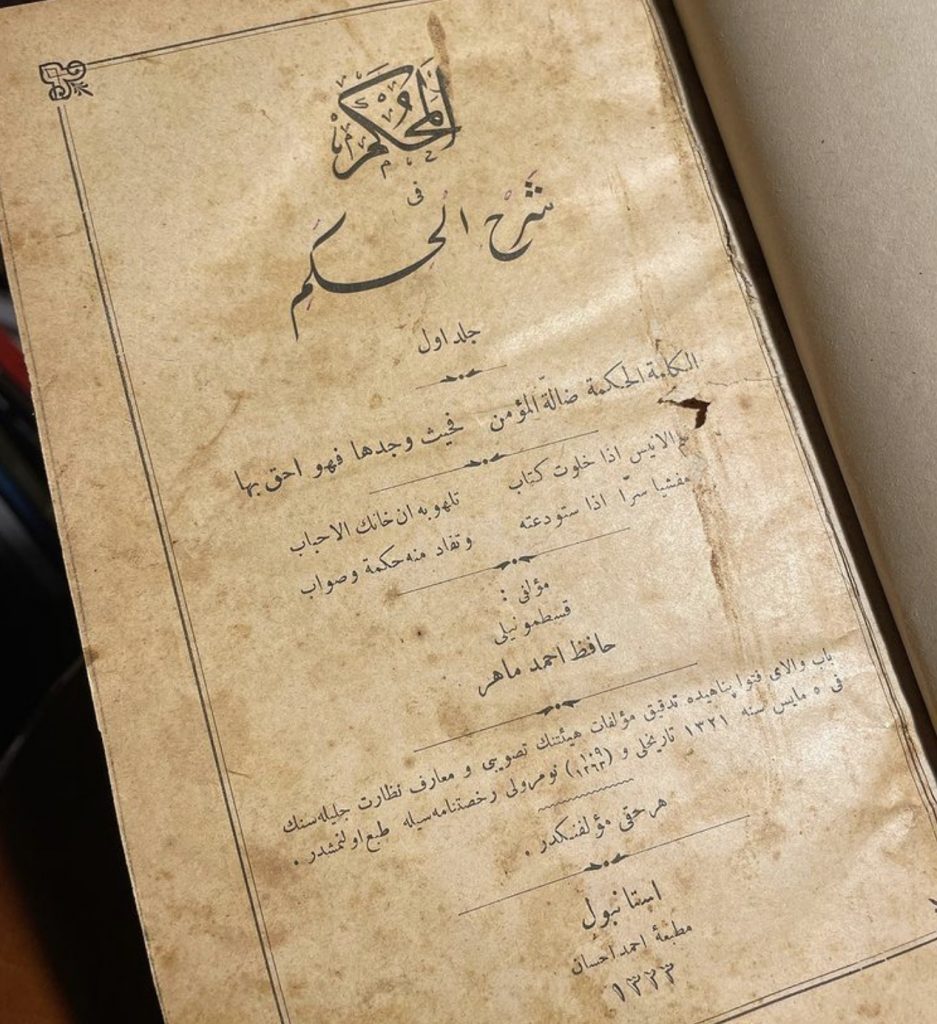 المحكم
فى
شرح الحكم
جلد اول
الكلمة الحكمة ضالّة المؤمن فحيث وجدها فهو احق بها
الانيس اذا خلوت كتاب تلهو به ان خانك الاحباب
مفشيا سرّا اذا ستودعته وتفاد منه حكمة وصواب
مؤلفى :
قسطمونيلى
حافظ احمد ماهر
باب والاى فتوا پناهيده تدقيق مؤلفات هيئتنك تصويبى و معارف نظارت جليله سنك
فى ٥ مايس سنه ١٣٢١ تاريخلى و نومرولى رخصتنامه سيله طبع اولنمشدر .
هر حقى مؤلفنكدر .
استانبول
مطبعهٔ احمد احسان
١٣٢٣